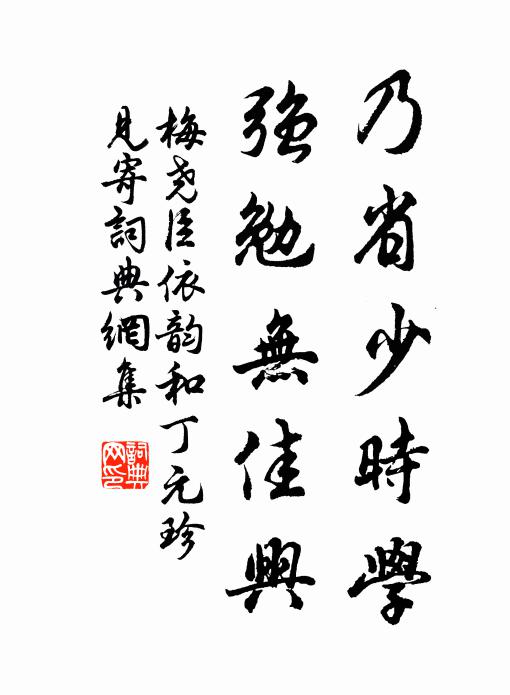 乃省少時學
強勉無佳興
梅堯臣依韵和丁元珍
見寄詞典網集
詞典
网印